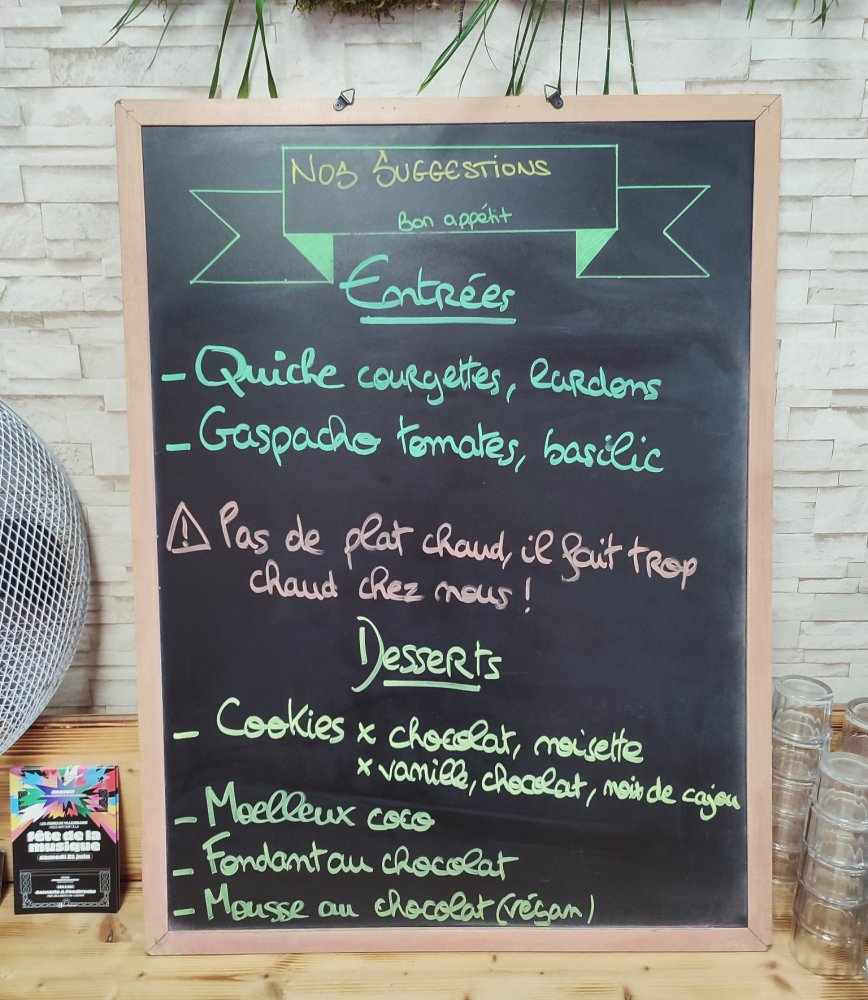 Nos Suggestions
Bon appétit
Entrées
- Quiche courgettes, lardons
- Gaspacho tomates, basilic
⚠ Pas de plat chaud, il fait trop
chaud chez nous !
Desserts
- Cookies x chocolat, noisette
x vanille, chocolat, noix de cajou
- Moelleux coco
- Fondant au chocolat
- Mousse au chocolat (végan)
fête de la
musique
samedi 21 juin